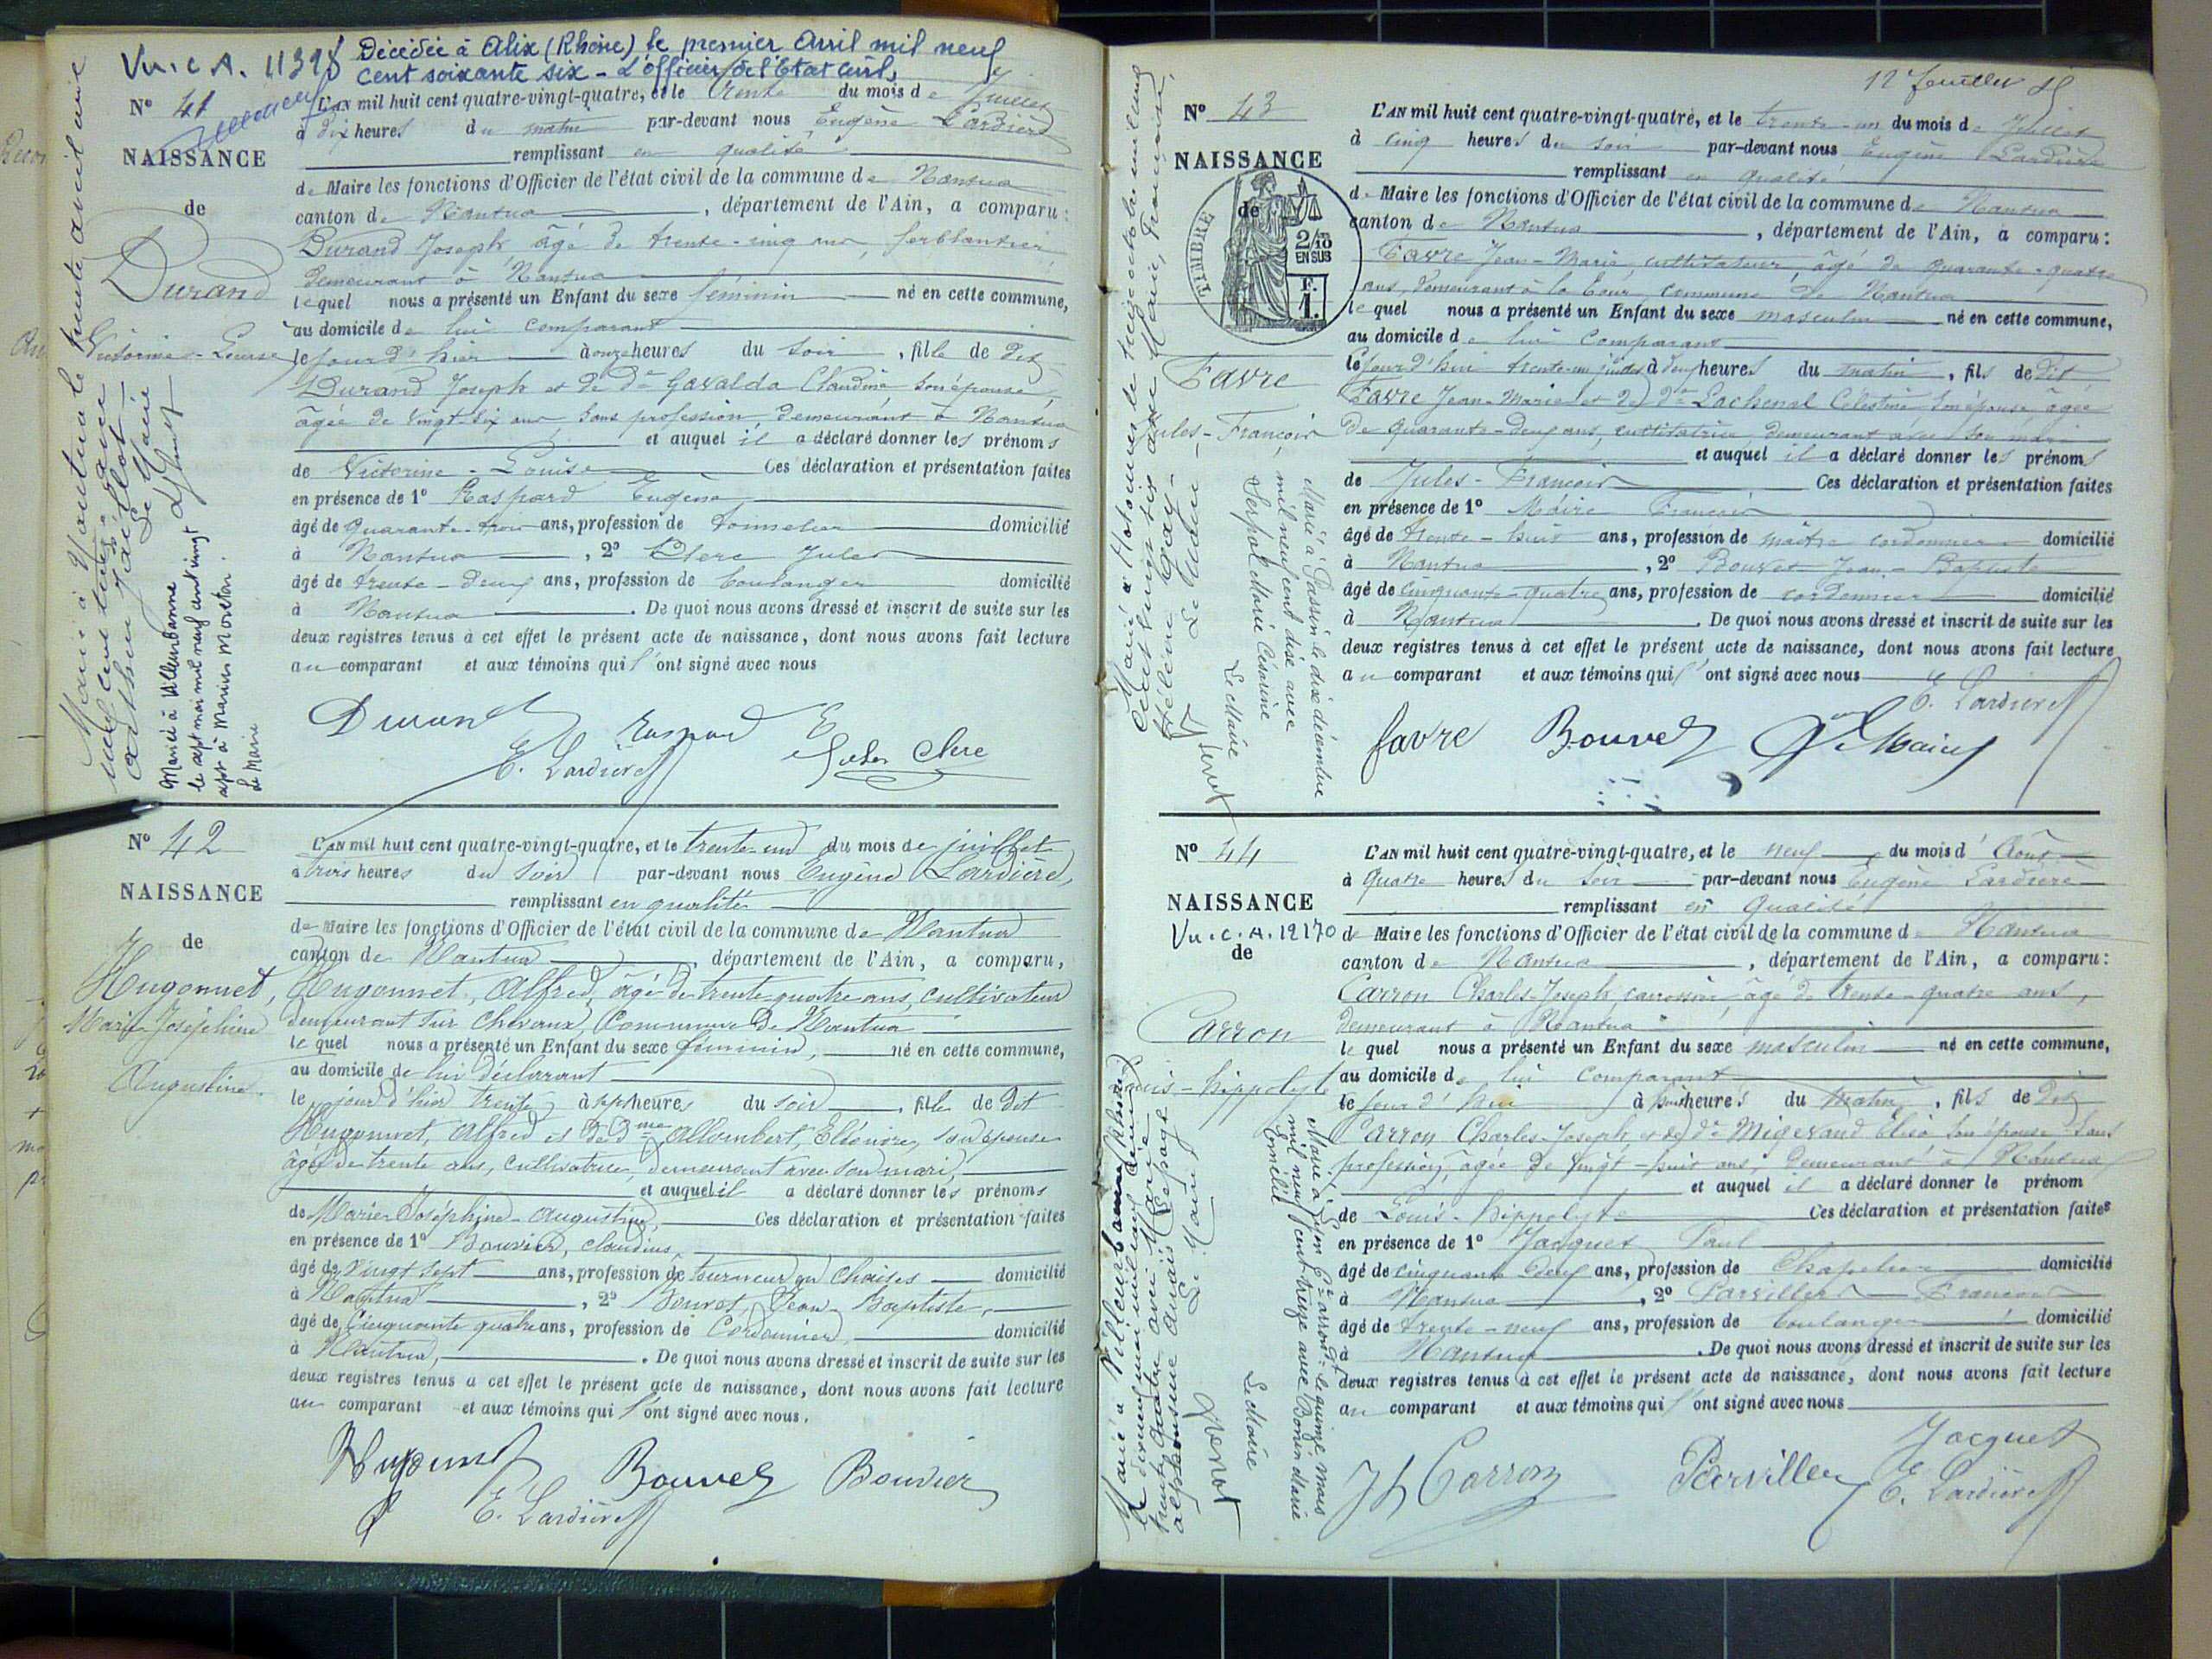 Vu. c A. 11398 Décédée à Alix (Rhône) le premier Avril mil neuf
cent soixante six - L'officier de l'Etat civil,
N° 41
NAISSANCE
de
Durand
Victorine-Louise
L'AN mil huit cent quatre-vingt-quatre, et le trente du mois de Juillet
à dix heures du matin par-devant nous Eugène Lardière
remplissant en qualité
de Maire les fonctions d'Officier de l'état civil de la commune de Nantua
canton de Nantua, département de l'Ain, a comparu :
Durand Joseph âgé de trente-cinq ans, ferblantier
demeurant à Nantua
lequel nous a présenté un Enfant du sexe féminin né en cette commune,
au domicile de lui comparant
le jour d'hier à onze heures du soir, fille de dit
Durand Joseph et de De Gavalda Claudine son épouse,
âgée de vingt-six ans, sans profession, demeurant à Nantua
et auquel il a déclaré donner les prénoms
de Victorine-Louise Ces déclaration et présentation faites
en présence de 1° Raspard Eugène
âgé de quarante-trois ans, profession de tonnelier domicilié
à Nantua, 2° Clerc Jules
âgé de trente-deux ans, profession de boulanger domicilié
à Nantua. De quoi nous avons dressé et inscrit de suite sur les
deux registres tenus à cet effet le présent acte de naissance, dont nous avons fait lecture
au comparant et aux témoins qui l'ont signé avec nous
Durand Raspard E
E. Lardière Jules Clerc
Mariée à Villeurbanne
le sept mai mil neuf cent vingt
sept à Marius Moretin.
Le Maire
N° 42
NAISSANCE
de
Hugonnet,
Marie-Joséphine
Augustine.
L'AN mil huit cent quatre-vingt-quatre, et le trente-un du mois de juillet
à trois heures du soir par-devant nous Eugène Lardière,
remplissant en qualité
de Maire les fonctions d'Officier de l'état civil de la commune de Nantua
canton de Nantua, département de l'Ain, a comparu,
Hugonnet, Alfred, âgé de trente-quatre ans, cultivateur
demeurant sur Chevaux, Commune de Nantua
lequel nous a présenté un Enfant du sexe féminin, né en cette commune,
au domicile de lui déclarant
le jour d'hier trente à sept heures du soir, fille de dit
Hugonnet, Alfred et de dme Allombert, Eléonore, son épouse
âgée de trente ans, cultivatrice, demeurant avec son mari,
et auquel il a déclaré donner les prénoms
de Marie-Joséphine-Augustine, Ces déclaration et présentation faites
en présence de 1° Bouvier, Claudius,
âgé de vingt sept ans, profession de tourneur en chaises domicilié
à Nantua, 2° Bouvet, Jean-Baptiste,
âgé de cinquante quatre ans, profession de Cordonnier domicilié
à Nantua, . De quoi nous avons dressé et inscrit de suite sur les
deux registres tenus à cet effet le présent acte de naissance, dont nous avons fait lecture
au comparant et aux témoins qui l'ont signé avec nous.
Hugonnet Bouvet Bouvier
E. Lardière
12e feuillet
N° 43
NAISSANCE
de
TIMBRE
2/10
EN SUS
F.
1.
Favre
Jules-François
L'AN mil huit cent quatre-vingt-quatre, et le trente-un du mois de Juillet
à cinq heures du soir par-devant nous Eugène Lardière
remplissant en qualité
de Maire les fonctions d'Officier de l'état civil de la commune de Nantua
canton de Nantua, département de l'Ain, a comparu :
Favre Jean-Marie, cultivateur, âgé de quarante-quatre
ans, demeurant à la Cour, commune de Nantua
lequel nous a présenté un Enfant du sexe masculin né en cette commune,
au domicile de lui comparant
le jour d'hui trente-un juillet à deux heures du matin, fils de dit
Favre Jean-Marie et de De Lachenal Célestine son épouse âgée
de quarante-deux ans, cultivatrice, demeurant avec son mari
et auquel il a déclaré donner les prénoms
de Jules-François Ces déclaration et présentation faites
en présence de 1° Maire François
âgé de trente-huit ans, profession de maître cordonnier domicilié
à Nantua, 2° Bouvet Jean-Baptiste
âgé de cinquante-quatre ans, profession de cordonnier domicilié
à Nantua. De quoi nous avons dressé et inscrit de suite sur les
deux registres tenus à cet effet le présent acte de naissance, dont nous avons fait lecture
au comparant et aux témoins qui l'ont signé avec nous
E. Lardière
favre Bouvet Maire
Marié à Passin le dix décembre
mil neuf cent dix avec
Serpol Marie Césarine
Le Maire
N° 44
NAISSANCE
Vu. C. A. 12170
de
Carron
Louis-Hippolyte
L'AN mil huit cent quatre-vingt-quatre, et le neuf du mois d'Août
à quatre heures du soir par-devant nous Eugène Lardière
remplissant en qualité
de Maire les fonctions d'Officier de l'état civil de la commune de Nantua
canton de Nantua, département de l'Ain, a comparu :
Carron Charles-Joseph, carrossier, âgé de trente-quatre ans,
demeurant à Nantua
lequel nous a présenté un Enfant du sexe masculin né en cette commune,
au domicile de lui comparant
le jour d'hui à heures du matin, fils de dit
Carron Charles-Joseph et de De Migevand Elisa son épouse sans
profession, âgée de vingt-huit ans, demeurant à Nantua
et auquel il a déclaré donner le prénom
de Louis-Hippolyte Ces déclaration et présentation faites
en présence de 1° Jacquet Paul
âgé de cinquante deux ans, profession de Chapelier domicilié
à Nantua, 2° Parvillers François
âgé de trente-neuf ans, profession de boulanger domicilié
à Nantua. De quoi nous avons dressé et inscrit de suite sur les
deux registres tenus à cet effet le présent acte de naissance, dont nous avons fait lecture
au comparant et aux témoins qui l'ont signé avec nous
Jacquet
Carron Parviller E. Lardière
Marié à Lyon 6e arrondt le quinze mars
mil neuf cent treize avec Bonin Marie
Emélie
Le Maire